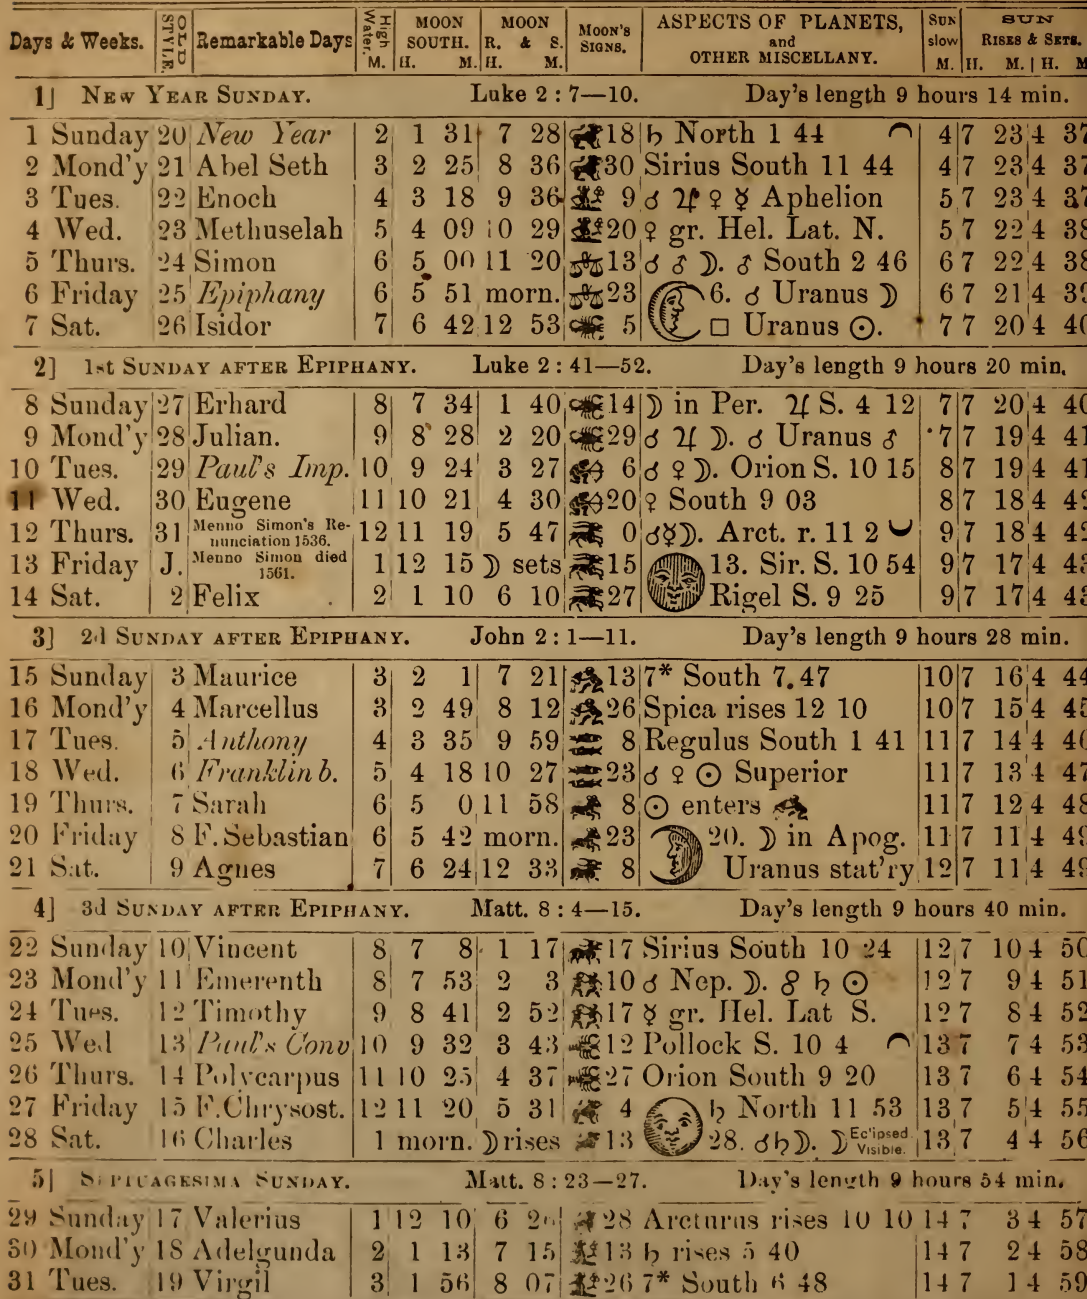 Days & Weeks. OLD STYLE. Remarkable Days High Water. M. MOON SOUTH. H. M. MOON R. & S. H. M. Moon's Signs. ASPECTS OF PLANETS, and OTHER MISCELLANY. Sun slow M. SUN Rises & Sets. H. M. | H. M
1] New Year Sunday. Luke 2 : 7—10. Day's length 9 hours 14 min.
1 Sunday 20 New Year 2 1 31 7 28 18 ♄ North 1 44 4 7 23 4 37
2 Mond'y 21 Abel Seth 3 2 25 8 36 30 Sirius South 11 44 4 7 23 4 37
3 Tues. 22 Enoch 4 3 18 9 36 9 ☌ ♃ ♀ ☿ Aphelion 5 7 23 4 37
4 Wed. 23 Methuselah 5 4 09 10 29 20 ♀ gr. Hel. Lat. N. 5 7 22 4 38
5 Thurs. 24 Simon 6 5 00 11 20 13 ☌ ♂ ☽. ♂ South 2 46 6 7 22 4 38
6 Friday 25 Epiphany 6 5 51 morn. 23 6. ☌ Uranus ☽ 6 7 21 4 39
7 Sat. 26 Isidor 7 6 42 12 53 5 □ Uranus ☉. 7 7 20 4 40
2] 1st Sunday after Epiphany. Luke 2 : 41—52. Day's length 9 hours 20 min.
8 Sunday 27 Erhard 8 7 34 1 40 14 ☽ in Per. ♃ S. 4 12 7 7 20 4 40
9 Mond'y 28 Julian. 9 8 28 2 20 29 ☌ ♃ ☽. ☌ Uranus ♂ 7 7 19 4 41
10 Tues. 29 Paul's Imp. 10 9 24 3 27 6 ☌ ♀ ☽. Orion S. 10 15 8 7 19 4 41
11 Wed. 30 Eugene 11 10 21 4 30 20 ♀ South 9 03 8 7 18 4 42
12 Thurs. 31 Menno Simon's Renunciation 1536. 12 11 19 5 47 0 ☌ ☿ ☽. Arct. r. 11 2 9 7 18 4 42
13 Friday J. Menno Simon died 1561. 1 12 15 ☽ sets 15 13. Sir. S. 10 54 9 7 17 4 43
14 Sat. 2 Felix 2 1 10 6 10 27 Rigel S. 9 25 9 7 17 4 43
3] 2d Sunday after Epiphany. John 2 : 1—11. Day's length 9 hours 28 min.
15 Sunday 3 Maurice 3 2 1 7 21 13 7* South 7.47 10 7 16 4 44
16 Mond'y 4 Marcellus 3 2 49 8 12 26 Spica rises 12 10 10 7 15 4 45
17 Tues. 5 Anthony 4 3 35 9 59 8 Regulus South 1 41 11 7 14 4 46
18 Wed. 6 Franklin b. 5 4 18 10 27 23 ☌ ♀ ☉ Superior 11 7 13 4 47
19 Thurs. 7 Sarah 6 5 0 11 58 8 ☉ enters 11 7 12 4 48
20 Friday 8 F. Sebastian 6 5 42 morn. 23 20. ☽ in Apog. 11 7 11 4 49
21 Sat. 9 Agnes 7 6 24 12 33 8 Uranus stat'ry 12 7 11 4 49
4] 3d Sunday after Epiphany. Matt. 8 : 4—15. Day's length 9 hours 40 min.
22 Sunday 10 Vincent 8 7 8 1 17 17 Sirius South 10 24 12 7 10 4 50
23 Mond'y 11 Emerenth 8 7 53 2 3 10 ☌ Nep. ☽. ☍ ♄ ☉ 12 7 9 4 51
24 Tues. 12 Timothy 9 8 41 2 52 17 ☿ gr. Hel. Lat S. 12 7 8 4 52
25 Wed 13 Paul's Conv 10 9 32 3 43 12 Pollock S. 10 4 13 7 7 4 53
26 Thurs. 14 Polycarpus 11 10 25 4 37 27 Orion South 9 20 13 7 6 4 54
27 Friday 15 F. Chrysost. 12 11 20 5 31 4 ♄ North 11 53 13 7 5 4 55
28 Sat. 16 Charles 1 morn. ☽ rises 13 28. ☌ ♄ ☽. ☽ Ec'ipsed Visible. 13 7 4 4 56
5] Septuagesima Sunday. Matt. 8 : 23—27. Day's length 9 hours 54 min.
29 Sunday 17 Valerius 1 12 10 6 28 Arcturus rises 10 10 14 7 3 4 57
30 Mond'y 18 Adelgunda 2 1 13 7 15 13 ♄ rises 5 40 14 7 2 4 58
31 Tues. 19 Virgil 3 1 56 8 07 26 7* South 6 48 14 7 1 4 59